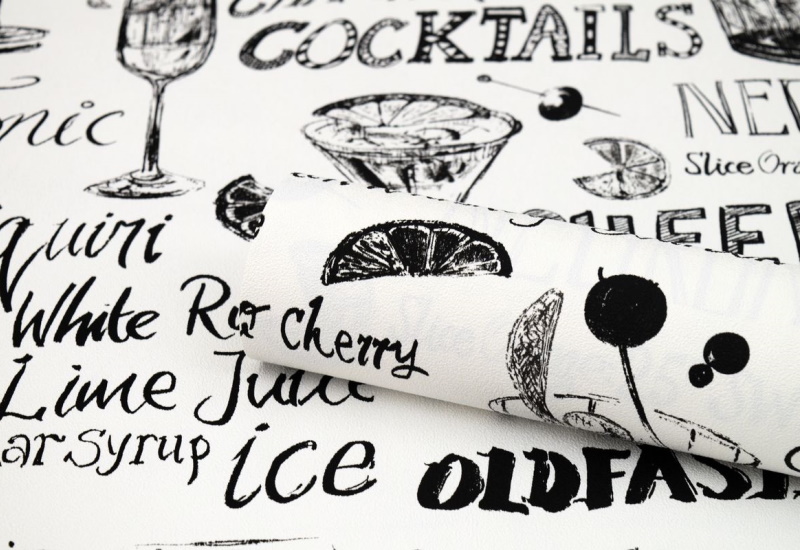 COCKTAILS
onic
NE
Slice Ora
quiri
CHEE
White R
Cherry
Lime Juice
ar Syrup
ice
OLDFAS